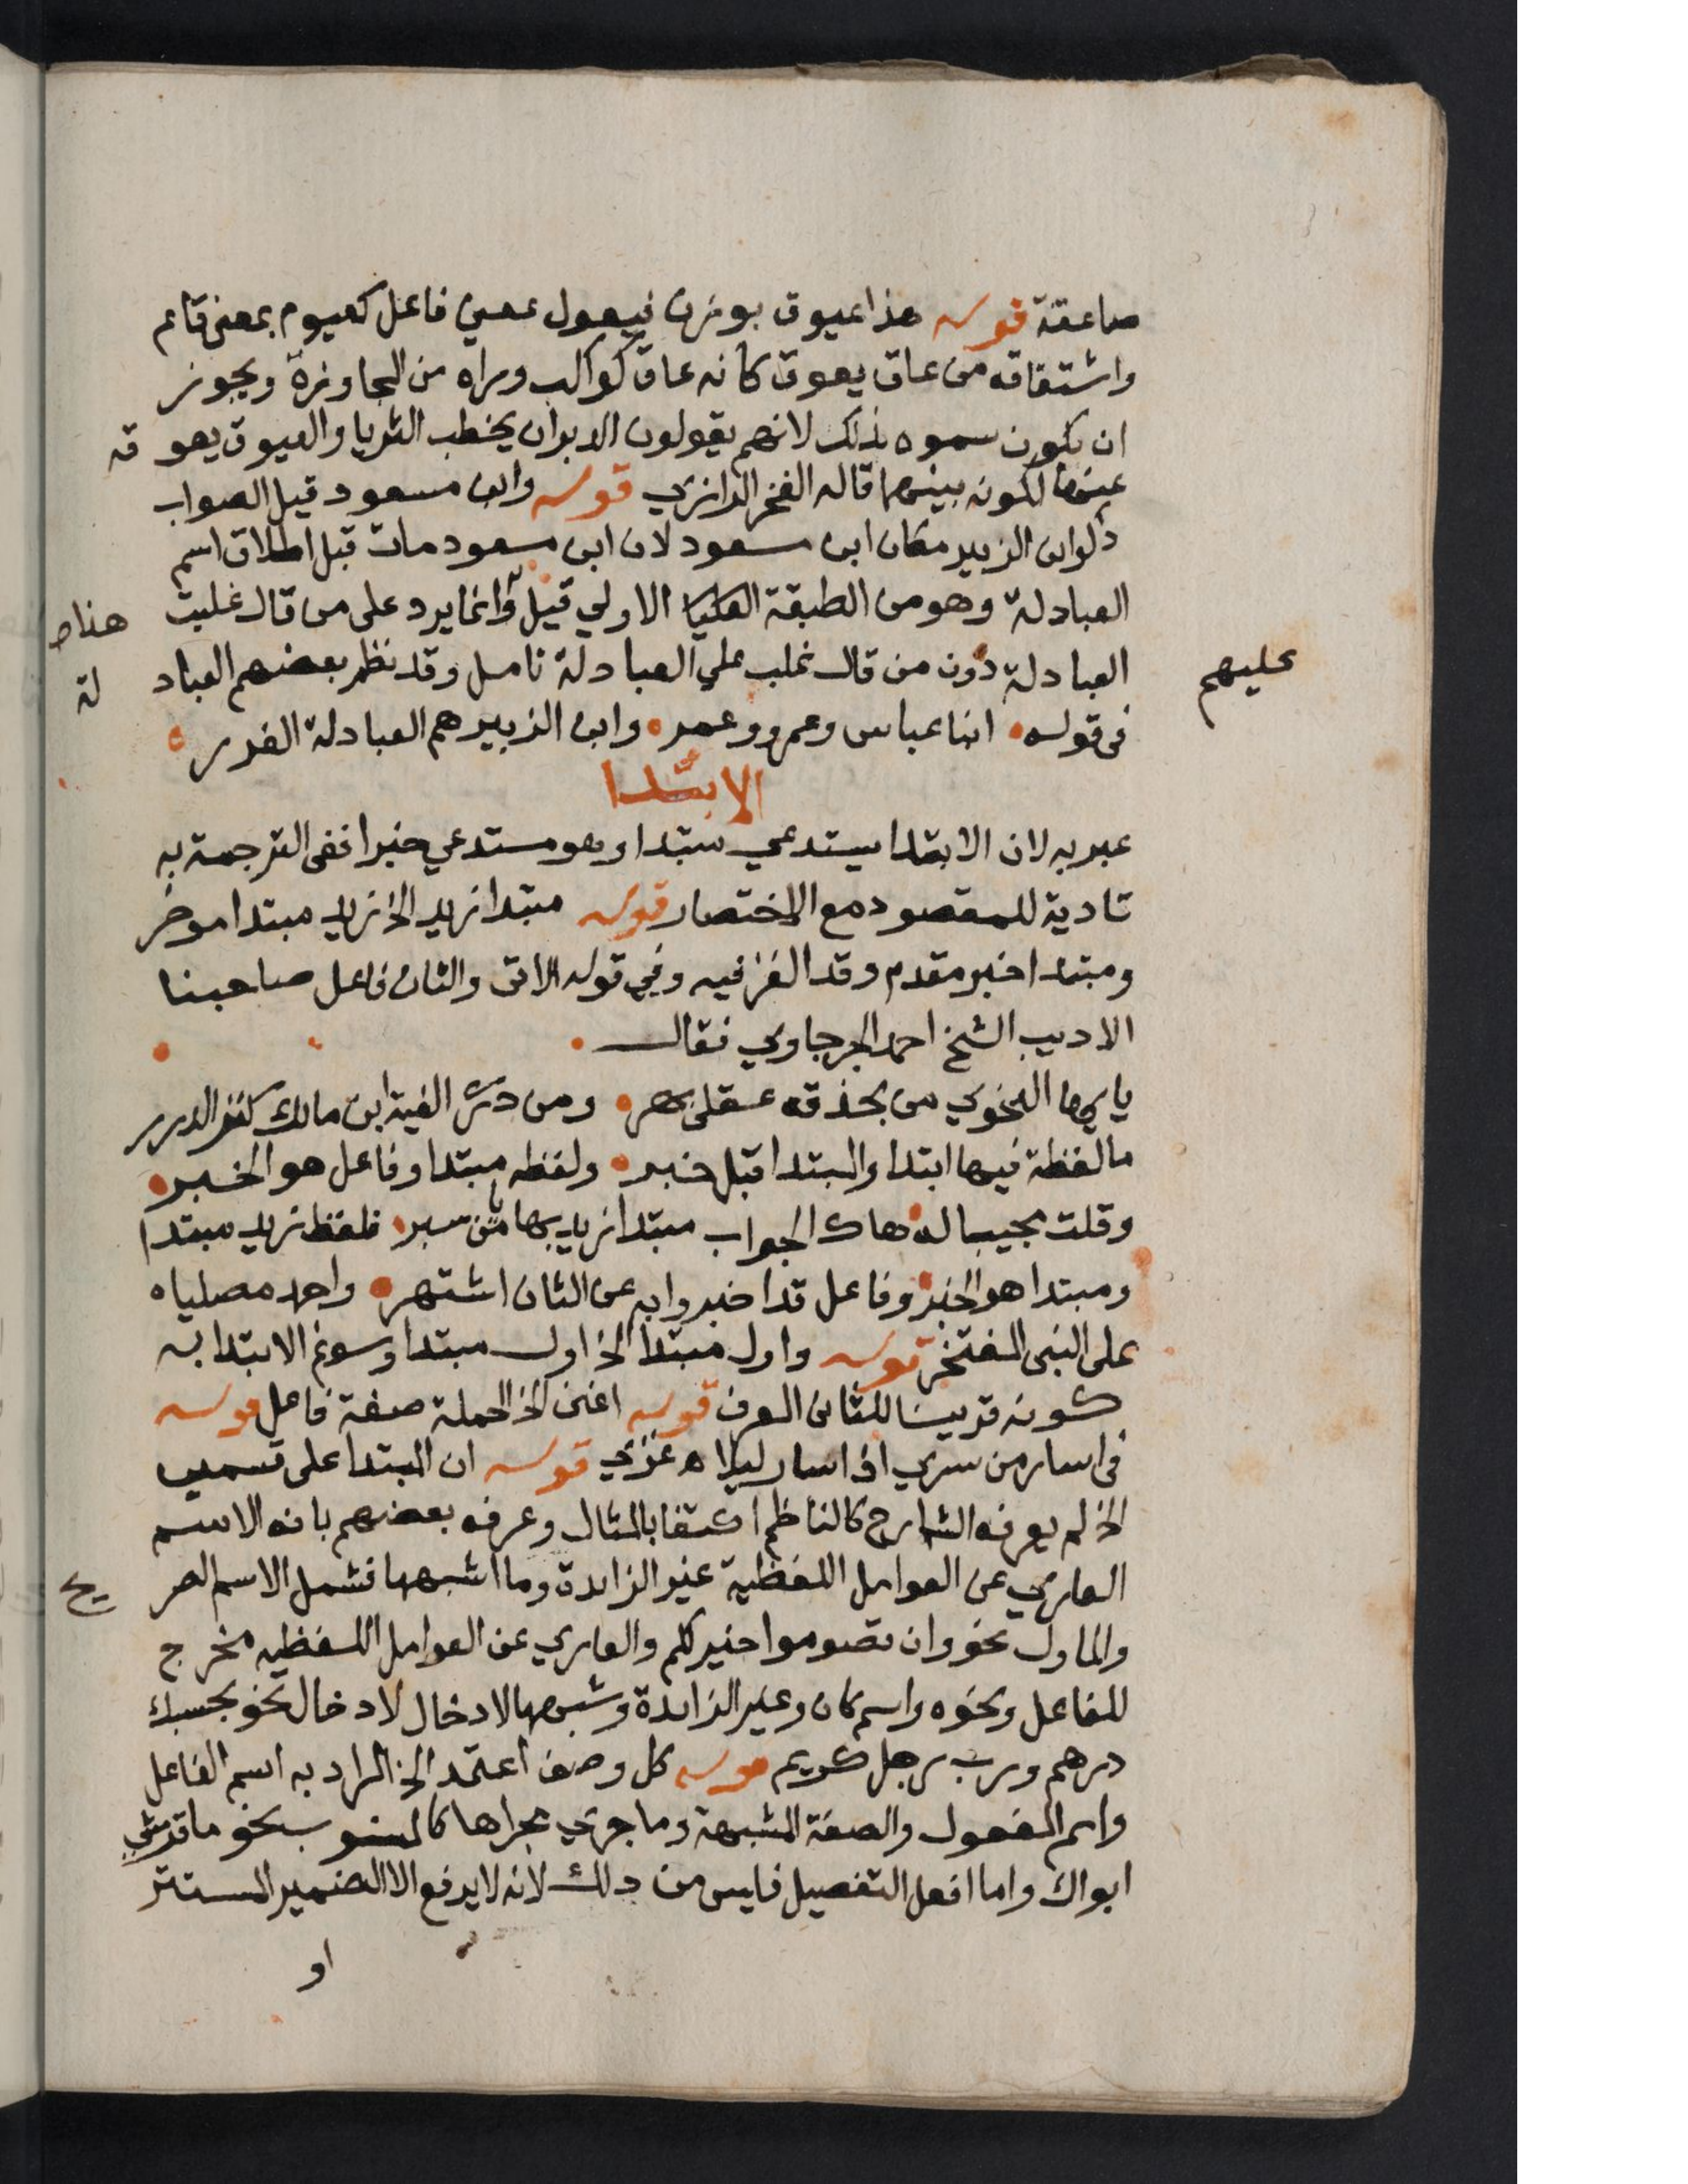 صاعقة قوله هذا عيوق بوزن فيعول بمعني فاعل كقيوم بمعني قائم
واشتقاقه من عاق يعوق كانه عاق كواكب وراه من المجاوزة ويجوز
ان يكون سموه بذلك لانهم يقولون الدبران يخطب الثريا والعيوق يعوقه
عنها لكونه بينهما قاله الفخر الرازي قوله وابن مسعود قيل الصواب
ذكر ابن الزبير مكان ابن مسعود لان ابن مسعود مات قبل اطلاق اسم
العبادلة وهو من الطبقة العليا الاولي قيل وانما يرد على من قال غلبت هنا ط
عليهم
العبادلة دون من قال غلب علي العبادلة تامل وقد نظم بعضهم العبادلة
في قوله ابنا عباس وعمرو وعمر وابن الزبير هم العبادلة الغرر
الابتدا
عبر به لان الابتدا يستدعي مبتدا وهو مستدعي خبرا ففي الترجمة به
تادية للمقصود مع الاختصار قوله مبتدا زيد الخ زيد مبتدا موخر
ومبتدا خبر مقدم وقد الغز فيه وفي قوله الاتي والثان فاعل صاحبنا
الاديب الشيخ احمد الجرجاوي فقال
يا ايها النحوي من بحذقه عقلي بهر ومن درى الفية ابن مالك كنز الدرر
ما لفظة فيها ابتدا والمبتدا قبل خبر ولفظه مبتدا وفاعل هو الخبر
وقلت مجيبا له هاك الجواب مبتدا زيد بها يا من سبر فلفظ زيد مبتدا
ومبتدا هو الخبر وفاعل قد اخبروا به عن الثان اشتهر واحمد مصلياه
على النبي المفتخر قوله واول مبتدا الخ اول مبتدا وسوغ الابتدا به
كونه قريبنا للثاني المعرف قوله اغني الخ الجملة صفة فاعل قوله
في اسار من سري اذا سار ليلا ه غزي قوله ان المبتدا على قسمين
الخ لم يعرفه الشارح كالناظم اكتفا بالمثال وعرفه بعضهم بانه الاسم
العاري عن العوامل اللفظية غير الزايدة وما اشبهها فشمل الاسم الصريح
والماول نحو وان تصوموا خير لكم والعاري عن العوامل اللفظيه مخرج
للفاعل ونحوه واسم كان وغير الزايدة وشبهها لادخال لادخال نحو بحسبك
درهم ورب رجل كريم قوله كل وصف اعتمد الخ المراد به اسم الفاعل
واسم المفعول والصفة المشبهة وما جري مجراها كالمنسوب نحو ما قرشي
ابواك واما افعل التفصيل فليس من ذلك لانه لا يرفع الا الضمير المستتر
او